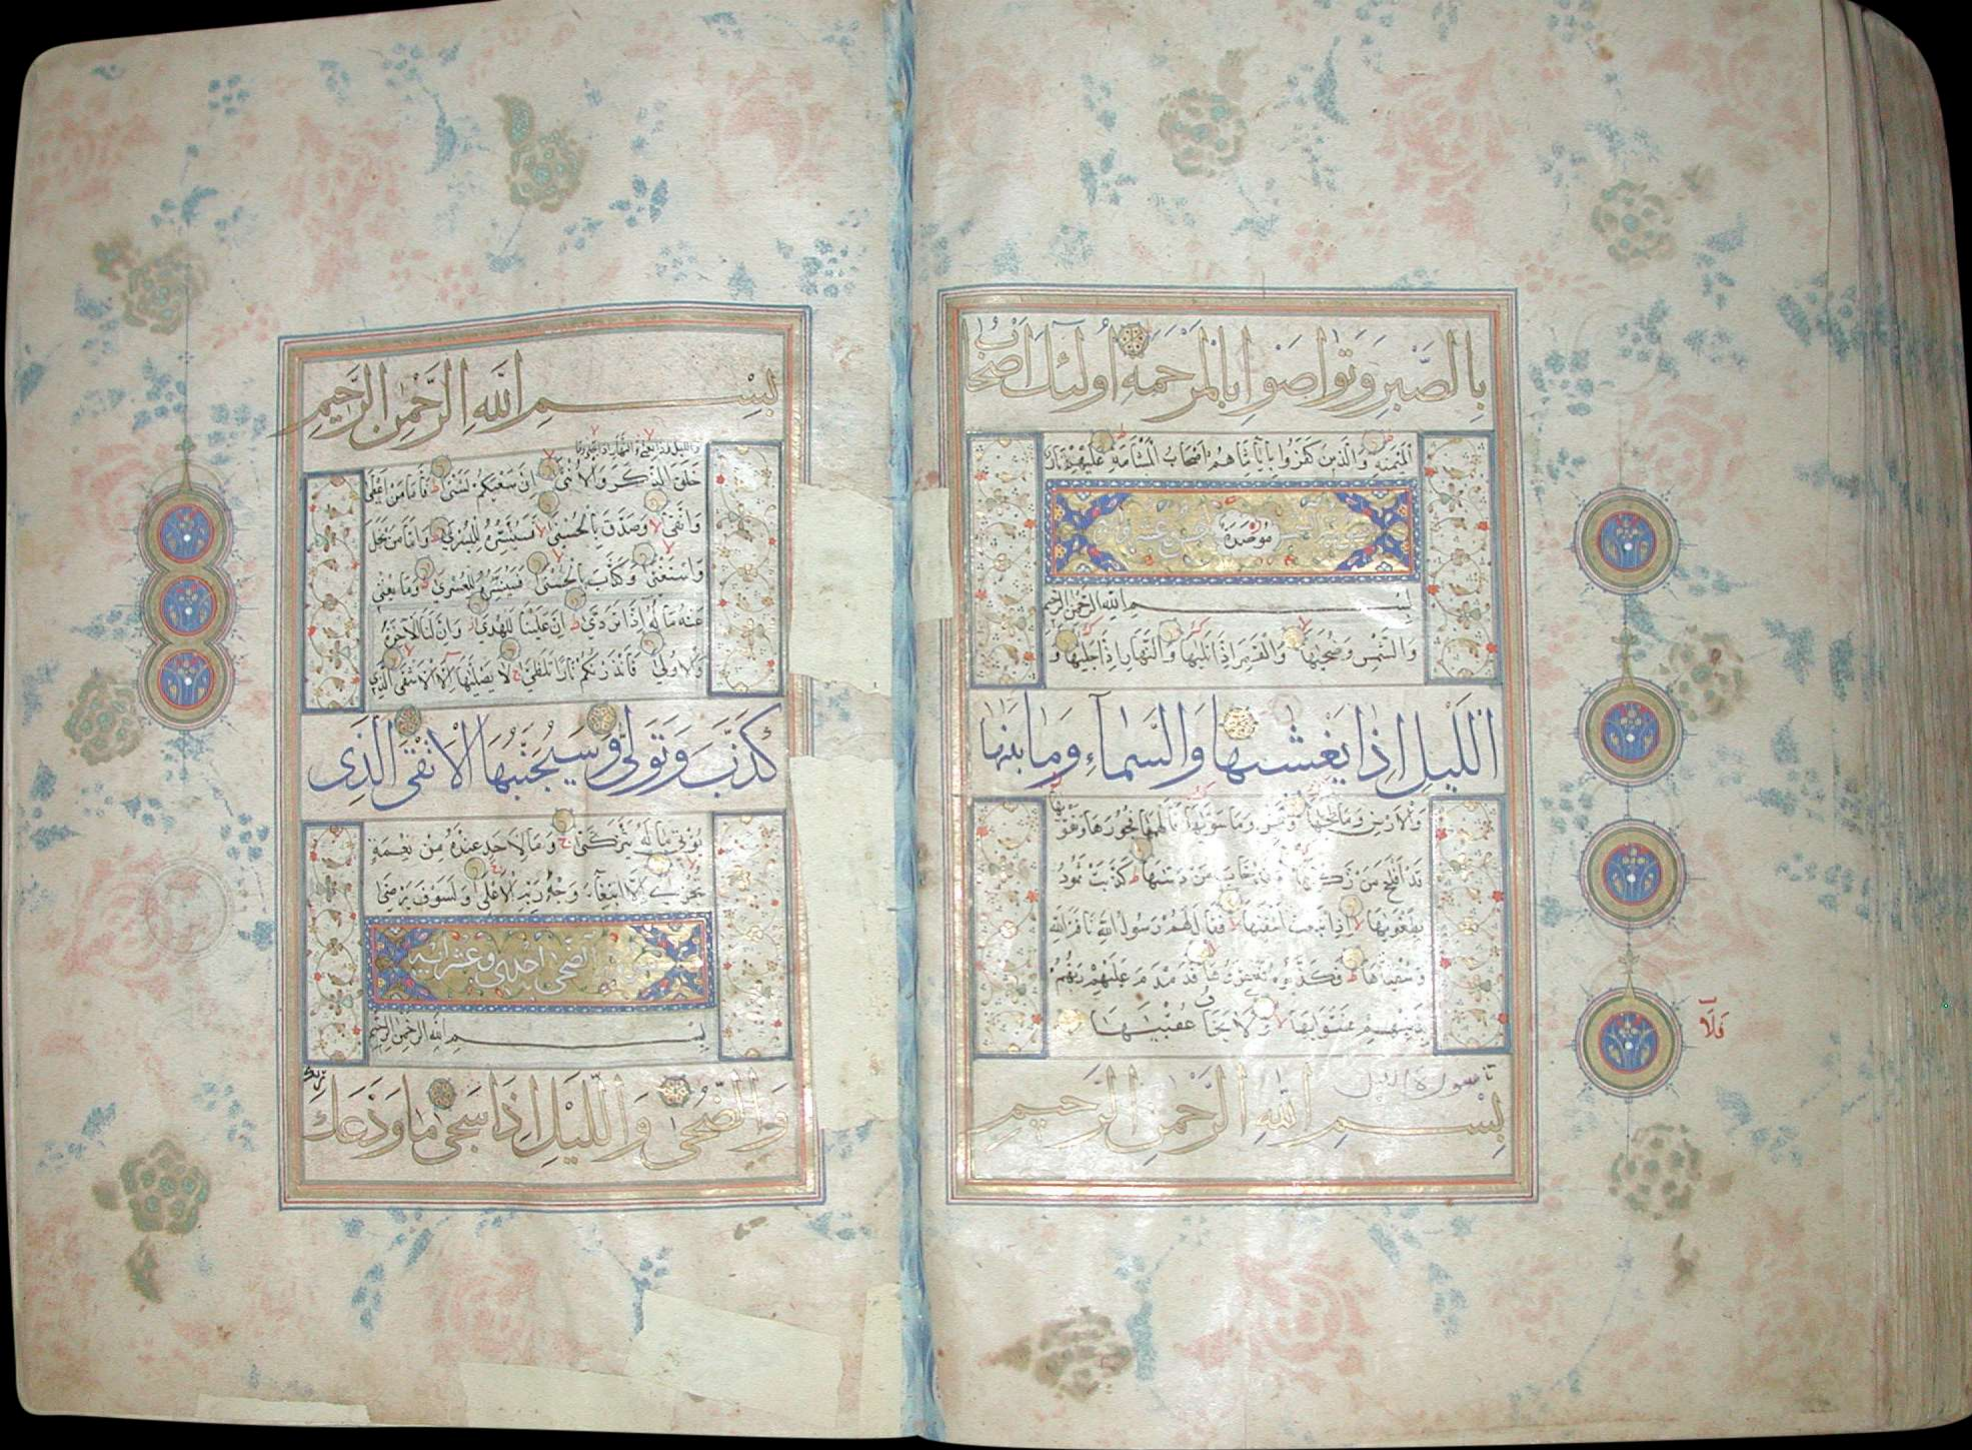 بِالصَّبْرِ وَتَوَاصَوْا بِالْمَرْحَمَةِ اُولٰئِكَ اَصْحَابُ
الْمَيْمَنَةِ وَالَّذِينَ كَفَرُوا بِاٰيَاتِنَا هُمْ اَصْحَابُ الْمَشْاَمَةِ عَلَيْهِمْ نَارٌ
مُوصَدَةٌ
بِسْمِ اللّٰهِ الرَّحْمٰنِ الرَّحِيمِ
وَالشَّمْسِ وَضُحٰيهَا وَالْقَمَرِ اِذَا تَلٰيهَا وَالنَّهَارِ اِذَا جَلّٰيهَا وَ
الَّيْلِ اِذَا يَغْشٰيهَا وَالسَّمَاءِ وَمَا بَنٰيهَا
وَالْاَرْضِ وَمَا طَحٰيهَا وَنَفْسٍ وَمَا سَوّٰيهَا فَاَلْهَمَهَا فُجُورَهَا وَتَقْوٰيهَا
قَدْ اَفْلَحَ مَنْ زَكّٰيهَا وَقَدْ خَابَ مَنْ دَسّٰيهَا كَذَّبَتْ ثَمُودُ
بِطَغْوٰيهَا اِذِ انْبَعَثَ اَشْقٰيهَا فَقَالَ لَهُمْ رَسُولُ اللّٰهِ نَاقَةَ اللّٰهِ
وَسُقْيٰهَا فَكَذَّبُوهُ فَعَقَرُوهَا فَدَمْدَمَ عَلَيْهِمْ رَبُّهُمْ
بِذَنْبِهِمْ فَسَوّٰيهَا وَلَا يَخَافُ عُقْبٰيهَا
سورة الليل
بِسْمِ اللّٰهِ الرَّحْمٰنِ الرَّحِيمِ
بِسْمِ اللّٰهِ الرَّحْمٰنِ الرَّحِيمِ
وَالَّيْلِ اِذَا يَغْشٰى وَالنَّهَارِ اِذَا تَجَلّٰى وَمَا
خَلَقَ الذَّكَرَ وَالْاُنْثٰى اِنَّ سَعْيَكُمْ لَشَتّٰى فَاَمَّا مَنْ اَعْطٰى
وَاتَّقٰى وَصَدَّقَ بِالْحُسْنٰى فَسَنُيَسِّرُهُ لِلْيُسْرٰى وَاَمَّا مَنْ بَخِلَ
وَاسْتَغْنٰى وَكَذَّبَ بِالْحُسْنٰى فَسَنُيَسِّرُهُ لِلْعُسْرٰى وَمَا يُغْنِى
عَنْهُ مَالُهُ اِذَا تَرَدّٰى اِنَّ عَلَيْنَا لَلْهُدٰى وَاِنَّ لَنَا لَلْاٰخِرَةَ
وَالْاُولٰى فَاَنْذَرْتُكُمْ نَارًا تَلَظّٰى لَا يَصْلٰيهَا اِلَّا الْاَشْقَى الَّذِى
كَذَّبَ وَتَوَلّٰى وَسَيُجَنَّبُهَا الْاَتْقَى الَّذِى
يُؤْتِى مَالَهُ يَتَزَكّٰى وَمَا لِاَحَدٍ عِنْدَهُ مِنْ نِعْمَةٍ
تُجْزٰى اِلَّا ابْتِغَاءَ وَجْهِ رَبِّهِ الْاَعْلٰى وَلَسَوْفَ يَرْضٰى
سورة الضحى احدى وعشر اية
بِسْمِ اللّٰهِ الرَّحْمٰنِ الرَّحِيمِ
وَالضُّحٰى وَالَّيْلِ اِذَا سَجٰى مَا وَدَّعَكَ